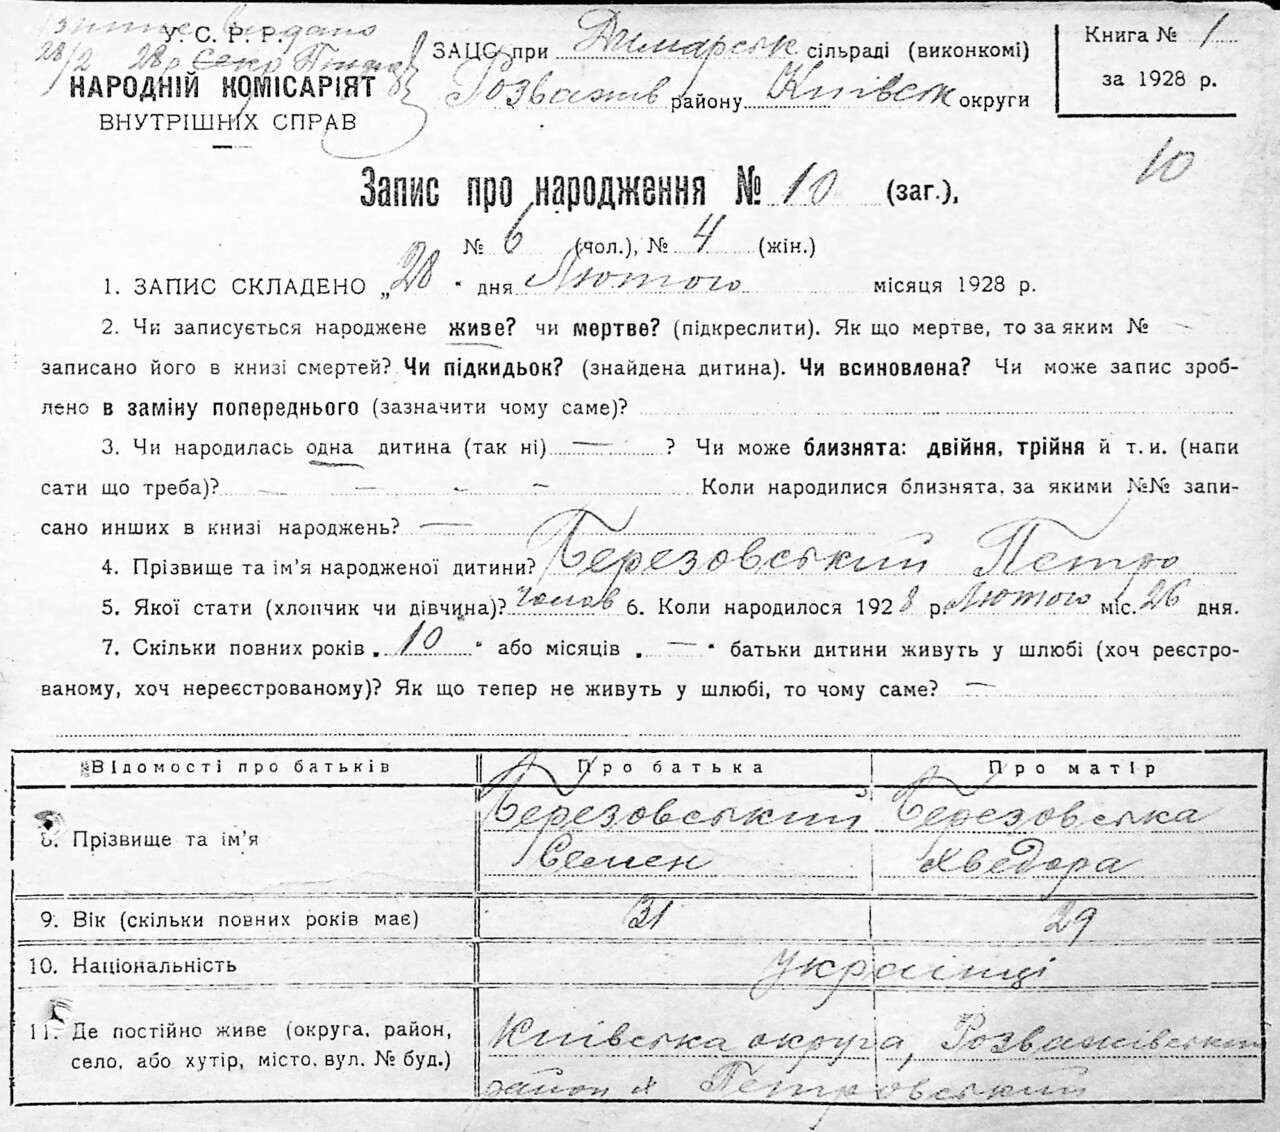 Витяг видано
28/2 28 р.
У. С. Р. Р.
НАРОДНІЙ КОМІСАРІЯТ
ВНУТРІШНІХ СПРАВ
ЗАЦС при Димарськ сільраді (виконкомі)
Розважив району Київськ округи
Книга № 1
за 1928 р.
10
Запис про народження № 10 (заг.),
№ 6 (чол.), № 4 (жін.)
1. ЗАПИС СКЛАДЕНО „28" дня Лютого місяця 1928 р.
2. Чи записується народжене живе? чи мертве? (підкреслити). Як що мертве, то за яким № —
записано його в книзі смертей? Чи підкидьок? (знайдена дитина). Чи всиновлена? Чи може запис зроб-
лено в заміну попереднього (зазначити чому саме)?
3. Чи народилась одна дитина (так ні) — ? Чи може близнята: двійня, трійня й т. и. (напи
сати що треба)? — — - – Коли народилися близнята, за якими №№ запи-
сано инших в книзі народжень? —
4. Прізвище та ім'я народженої дитини? Березовський Петро
5. Якої стати (хлопчик чи дівчина)? чолов 6. Коли народилося 1928 р. Лютого міс. 26 дня.
7. Скільки повних років „10" або місяців „—" батьки дитини живуть у шлюбі (хоч реєстро-
ваному, хоч нереєстрованому)? Як що тепер не живуть у шлюбі, то чому саме? —
Відомості про батьків Про батька Про матір
8. Прізвище та ім'я Березовський Семен Березовська Хведора
9. Вік (скільки повних років має) 31 29
10. Національність українці
11. Де постійно живе (округа, район, Київська округа, Розважівський
село, або хутір, місто, вул. № буд.) район х Петровський